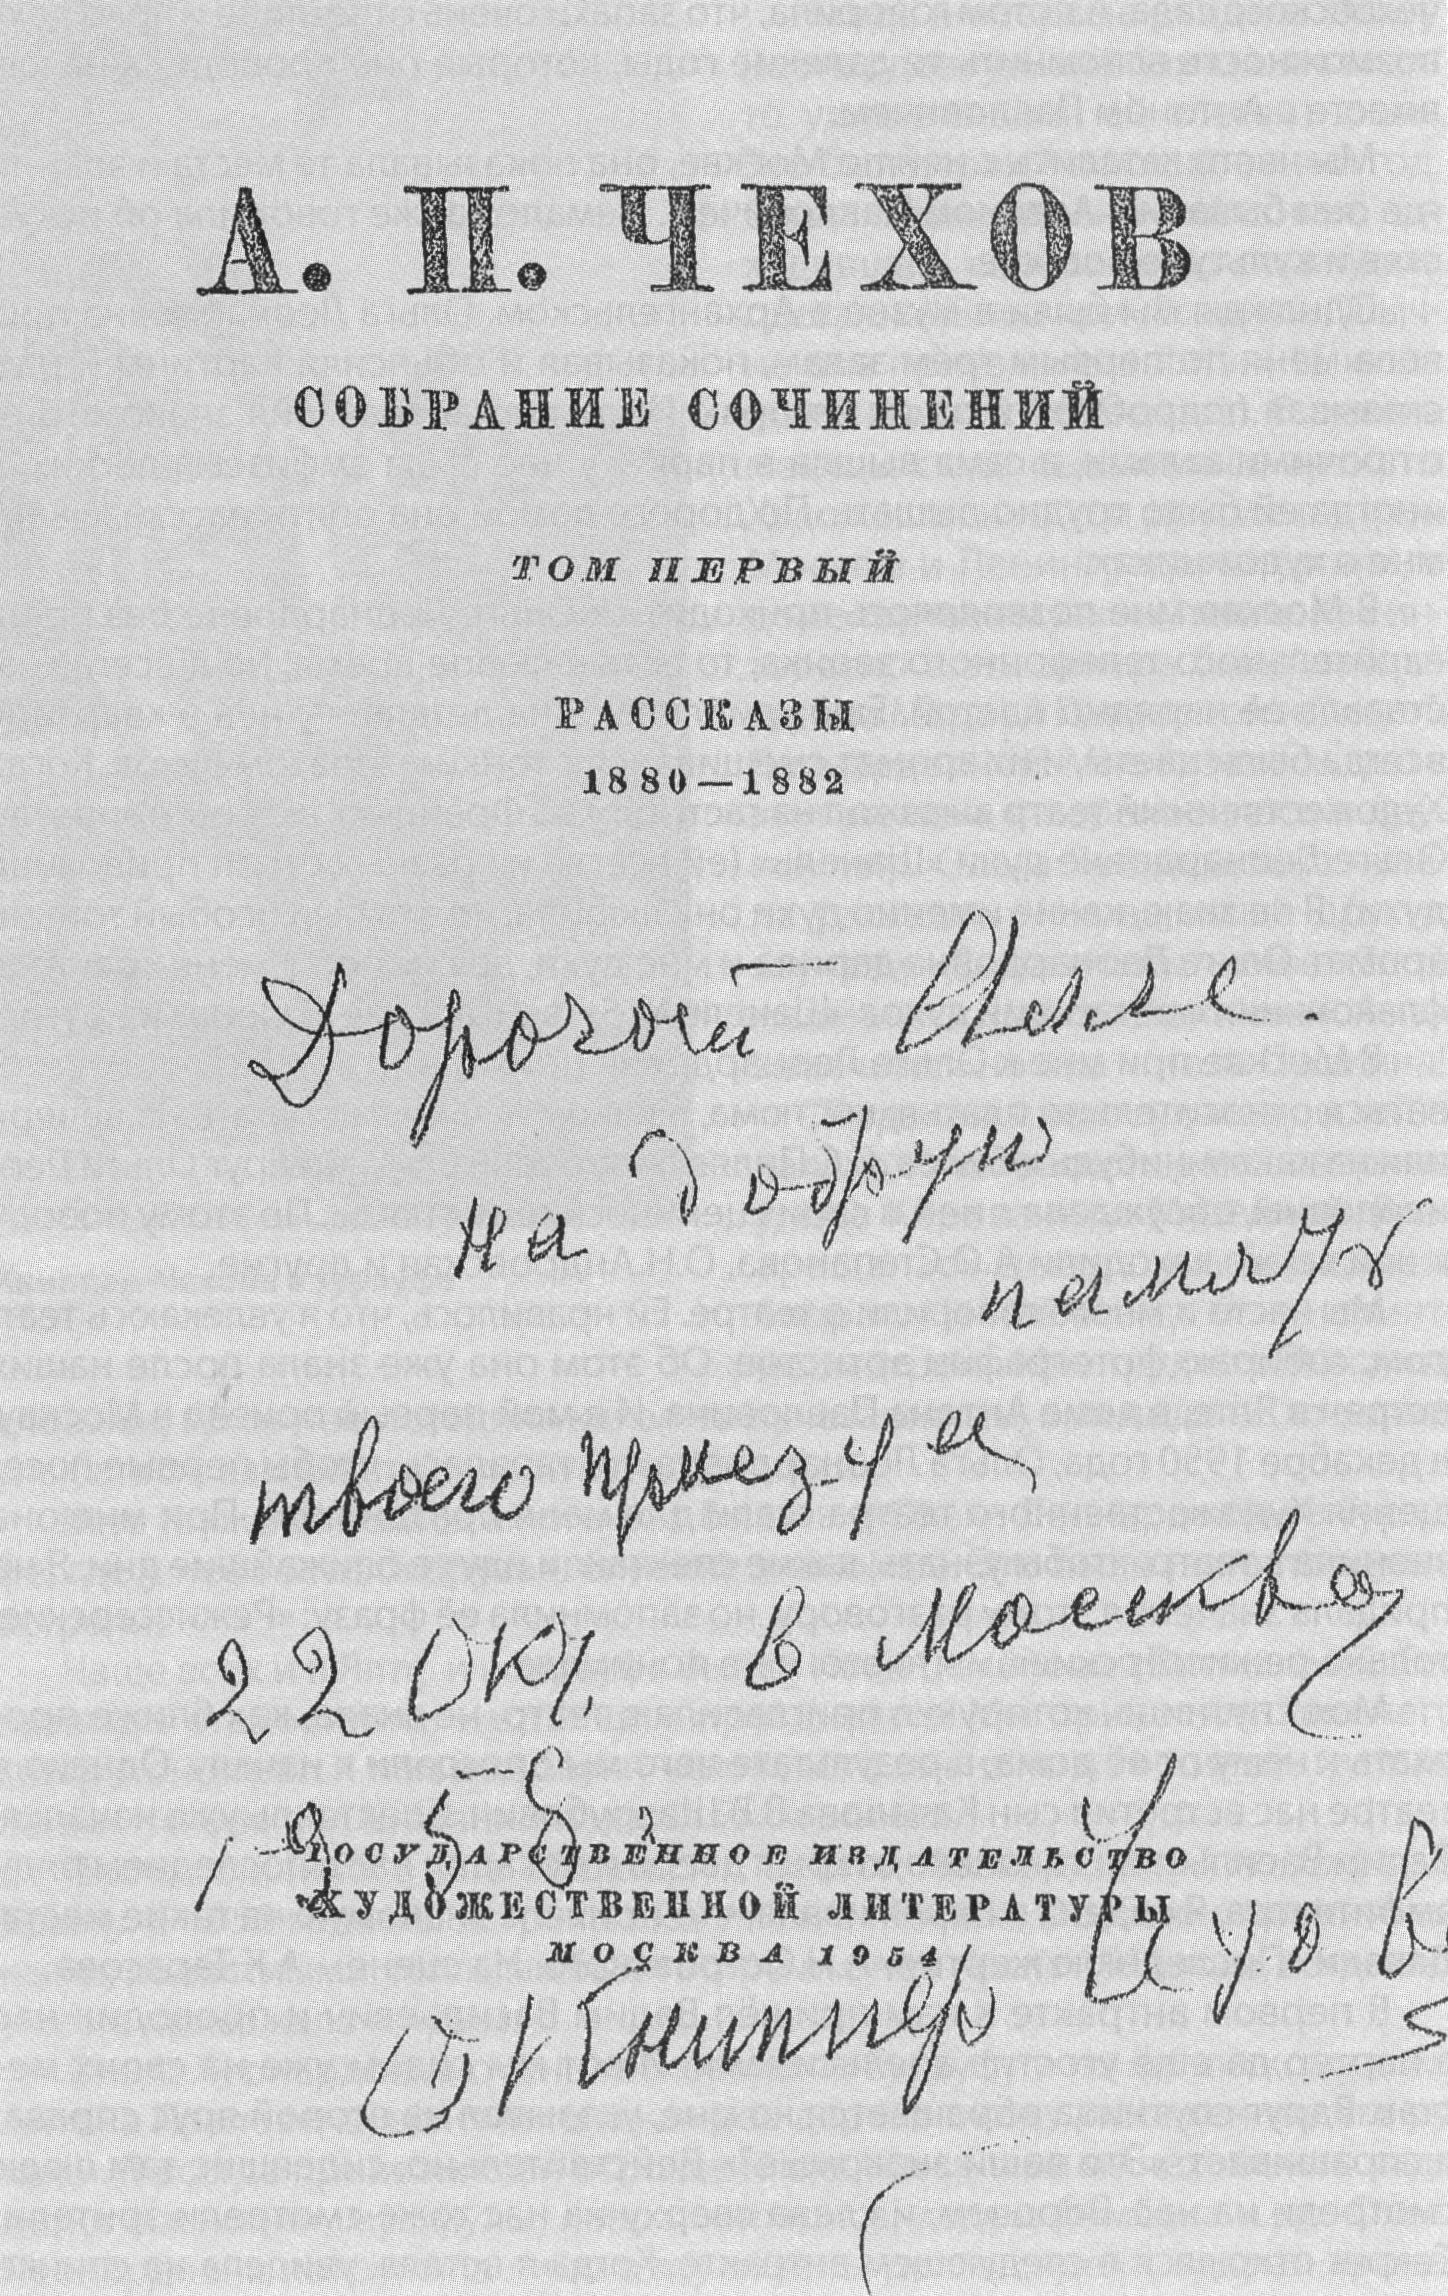 А. П. ЧЕХОВ
СОБРАНИЕ СОЧИНЕНИЙ
ТОМ ПЕРВЫЙ
РАССКАЗЫ
1880—1882
Дорогой
на добрую
память
твоего приезда
в Москву
22 окт.
1956 г.
ГОСУДАРСТВЕННОЕ ИЗДАТЕЛЬСТВО
ХУДОЖЕСТВЕННОЙ ЛИТЕРАТУРЫ
МОСКВА 1954
О Книппер